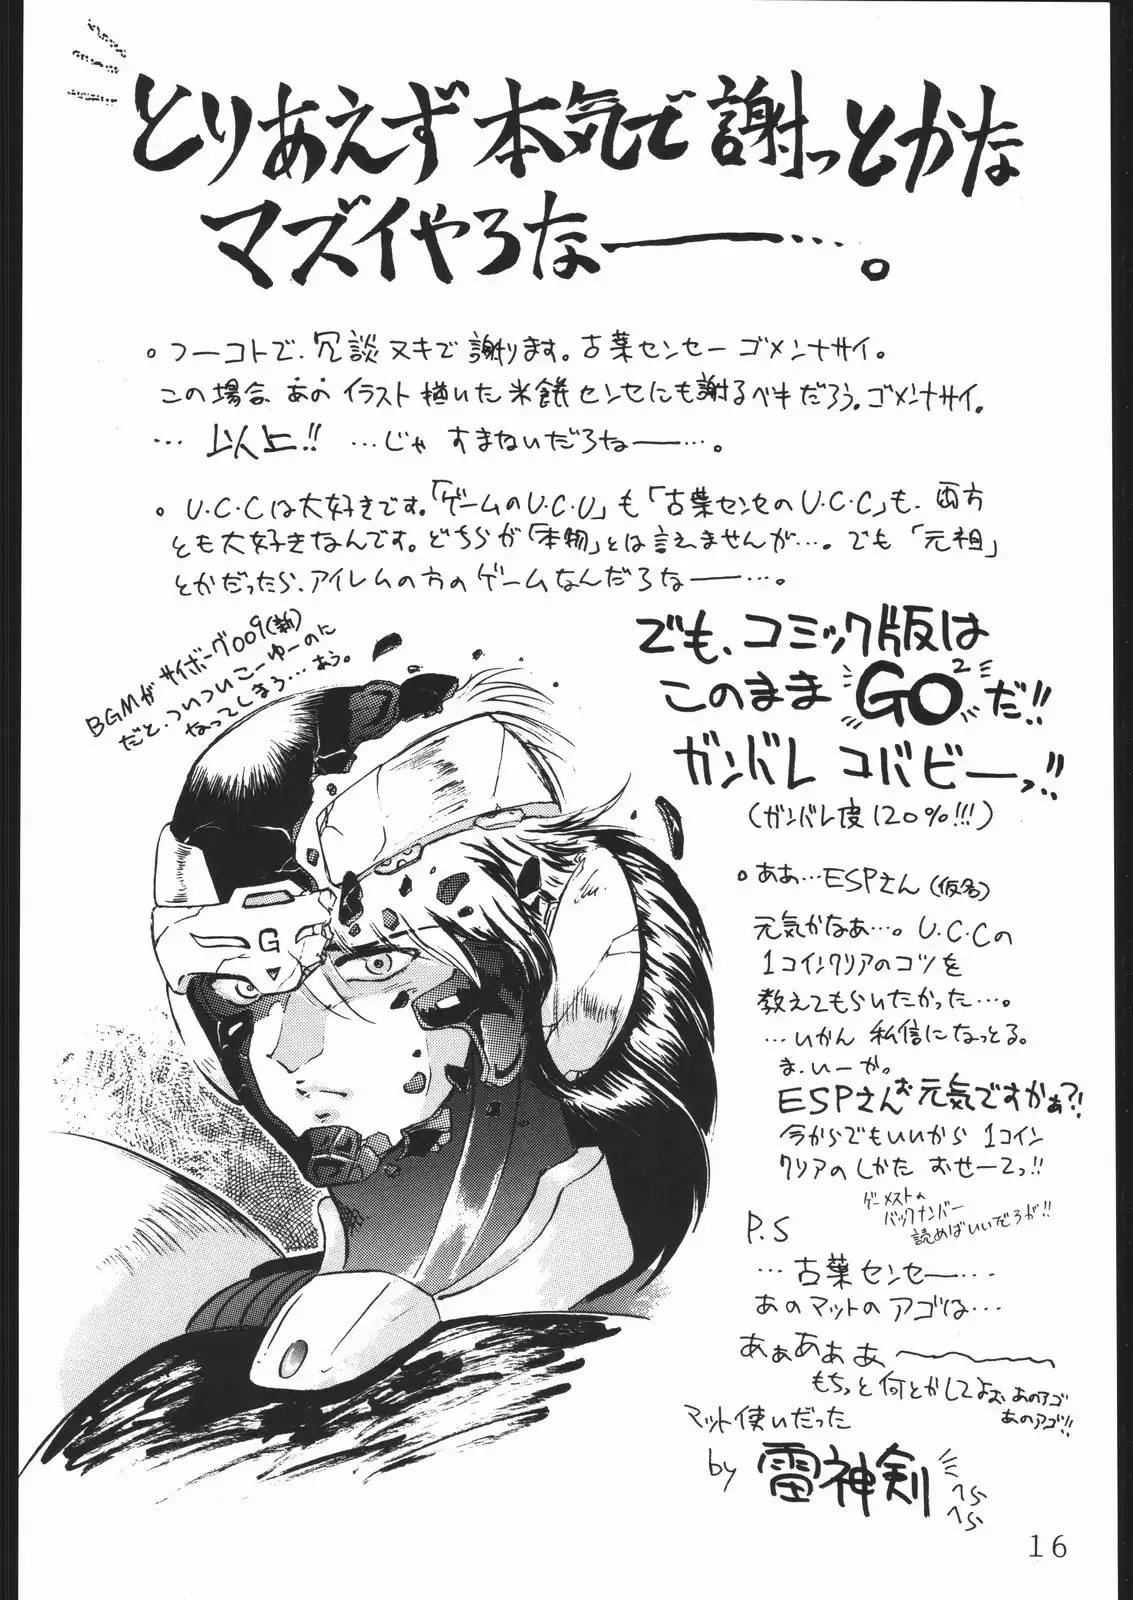 とりあえず本気で謝っとかな
マズイやろな――…。
。フーコトで、冗談ヌキで謝ります。古葉センセー ゴメンナサイ。
この場合、あのイラスト描いた米餅センセにも謝るべきだろう。ゴメンナサイ。
… 以上!! …じゃ すまねいだろな――…。
。U.C.Cは大好きです。「ゲームのU.C.U」も「古葉センセのU.C.C」も、両方
とも大好きなんです。どちらが「本物」とは言えませんが…。でも「元祖」
とかだったら、アイレムの方のゲームなんだろな――…。
BGMがサイボーグ009(新)
だと、ついついこーゆーのに
なってしまう…あぅ。
でも、コミック版は
このまま GO² だ!!
ガンバレ コバビーっ!!
(ガンバレ度120%!!!)
。ああ…ESPさん(仮名)
元気かなあ…。U.C.Cの
1コインクリアのコツを
教えてもらいたかった…。
…いかん 私信になっとる。
ま.いーか。
ESPさんお元気ですかぁ?!
今からでもいいから 1コイン
クリアのしかた おせーてっ!!
ゲーメストの
バックナンバー
読めばいいだろが!!
P.S
…古葉センセー…
あのマットのアゴは…
あぁあぁあ、〜〜〜
もちっと何とかしてよぉ あのアゴ
あのアゴ!!
マット使いだった
by 雷神剣
へら
へら
16